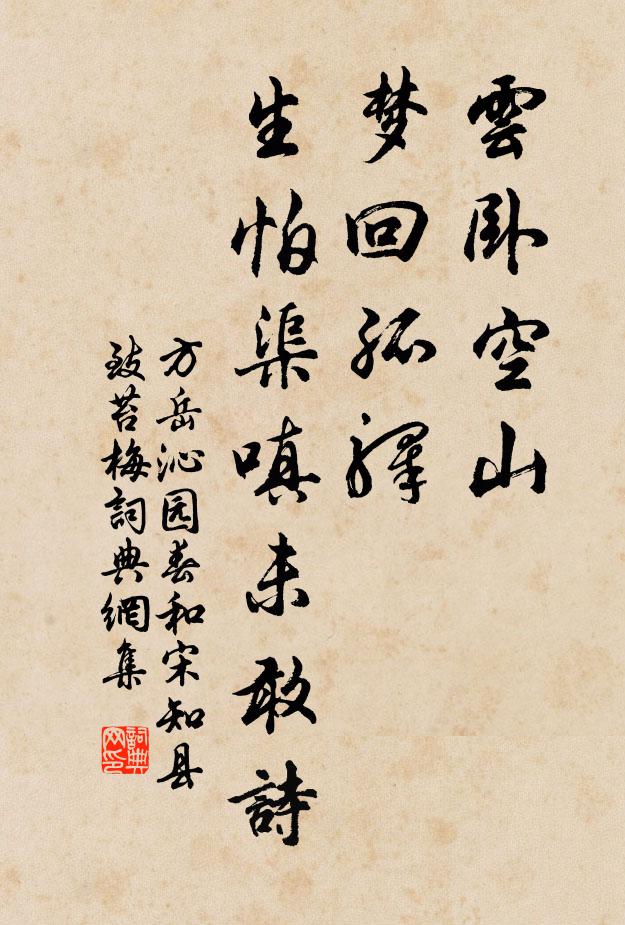 雲卧空山
梦回孤驛
生怕渠嗔未敢詩
方岳沁园春和宋知县
致苔梅詞典網集
詞典网印